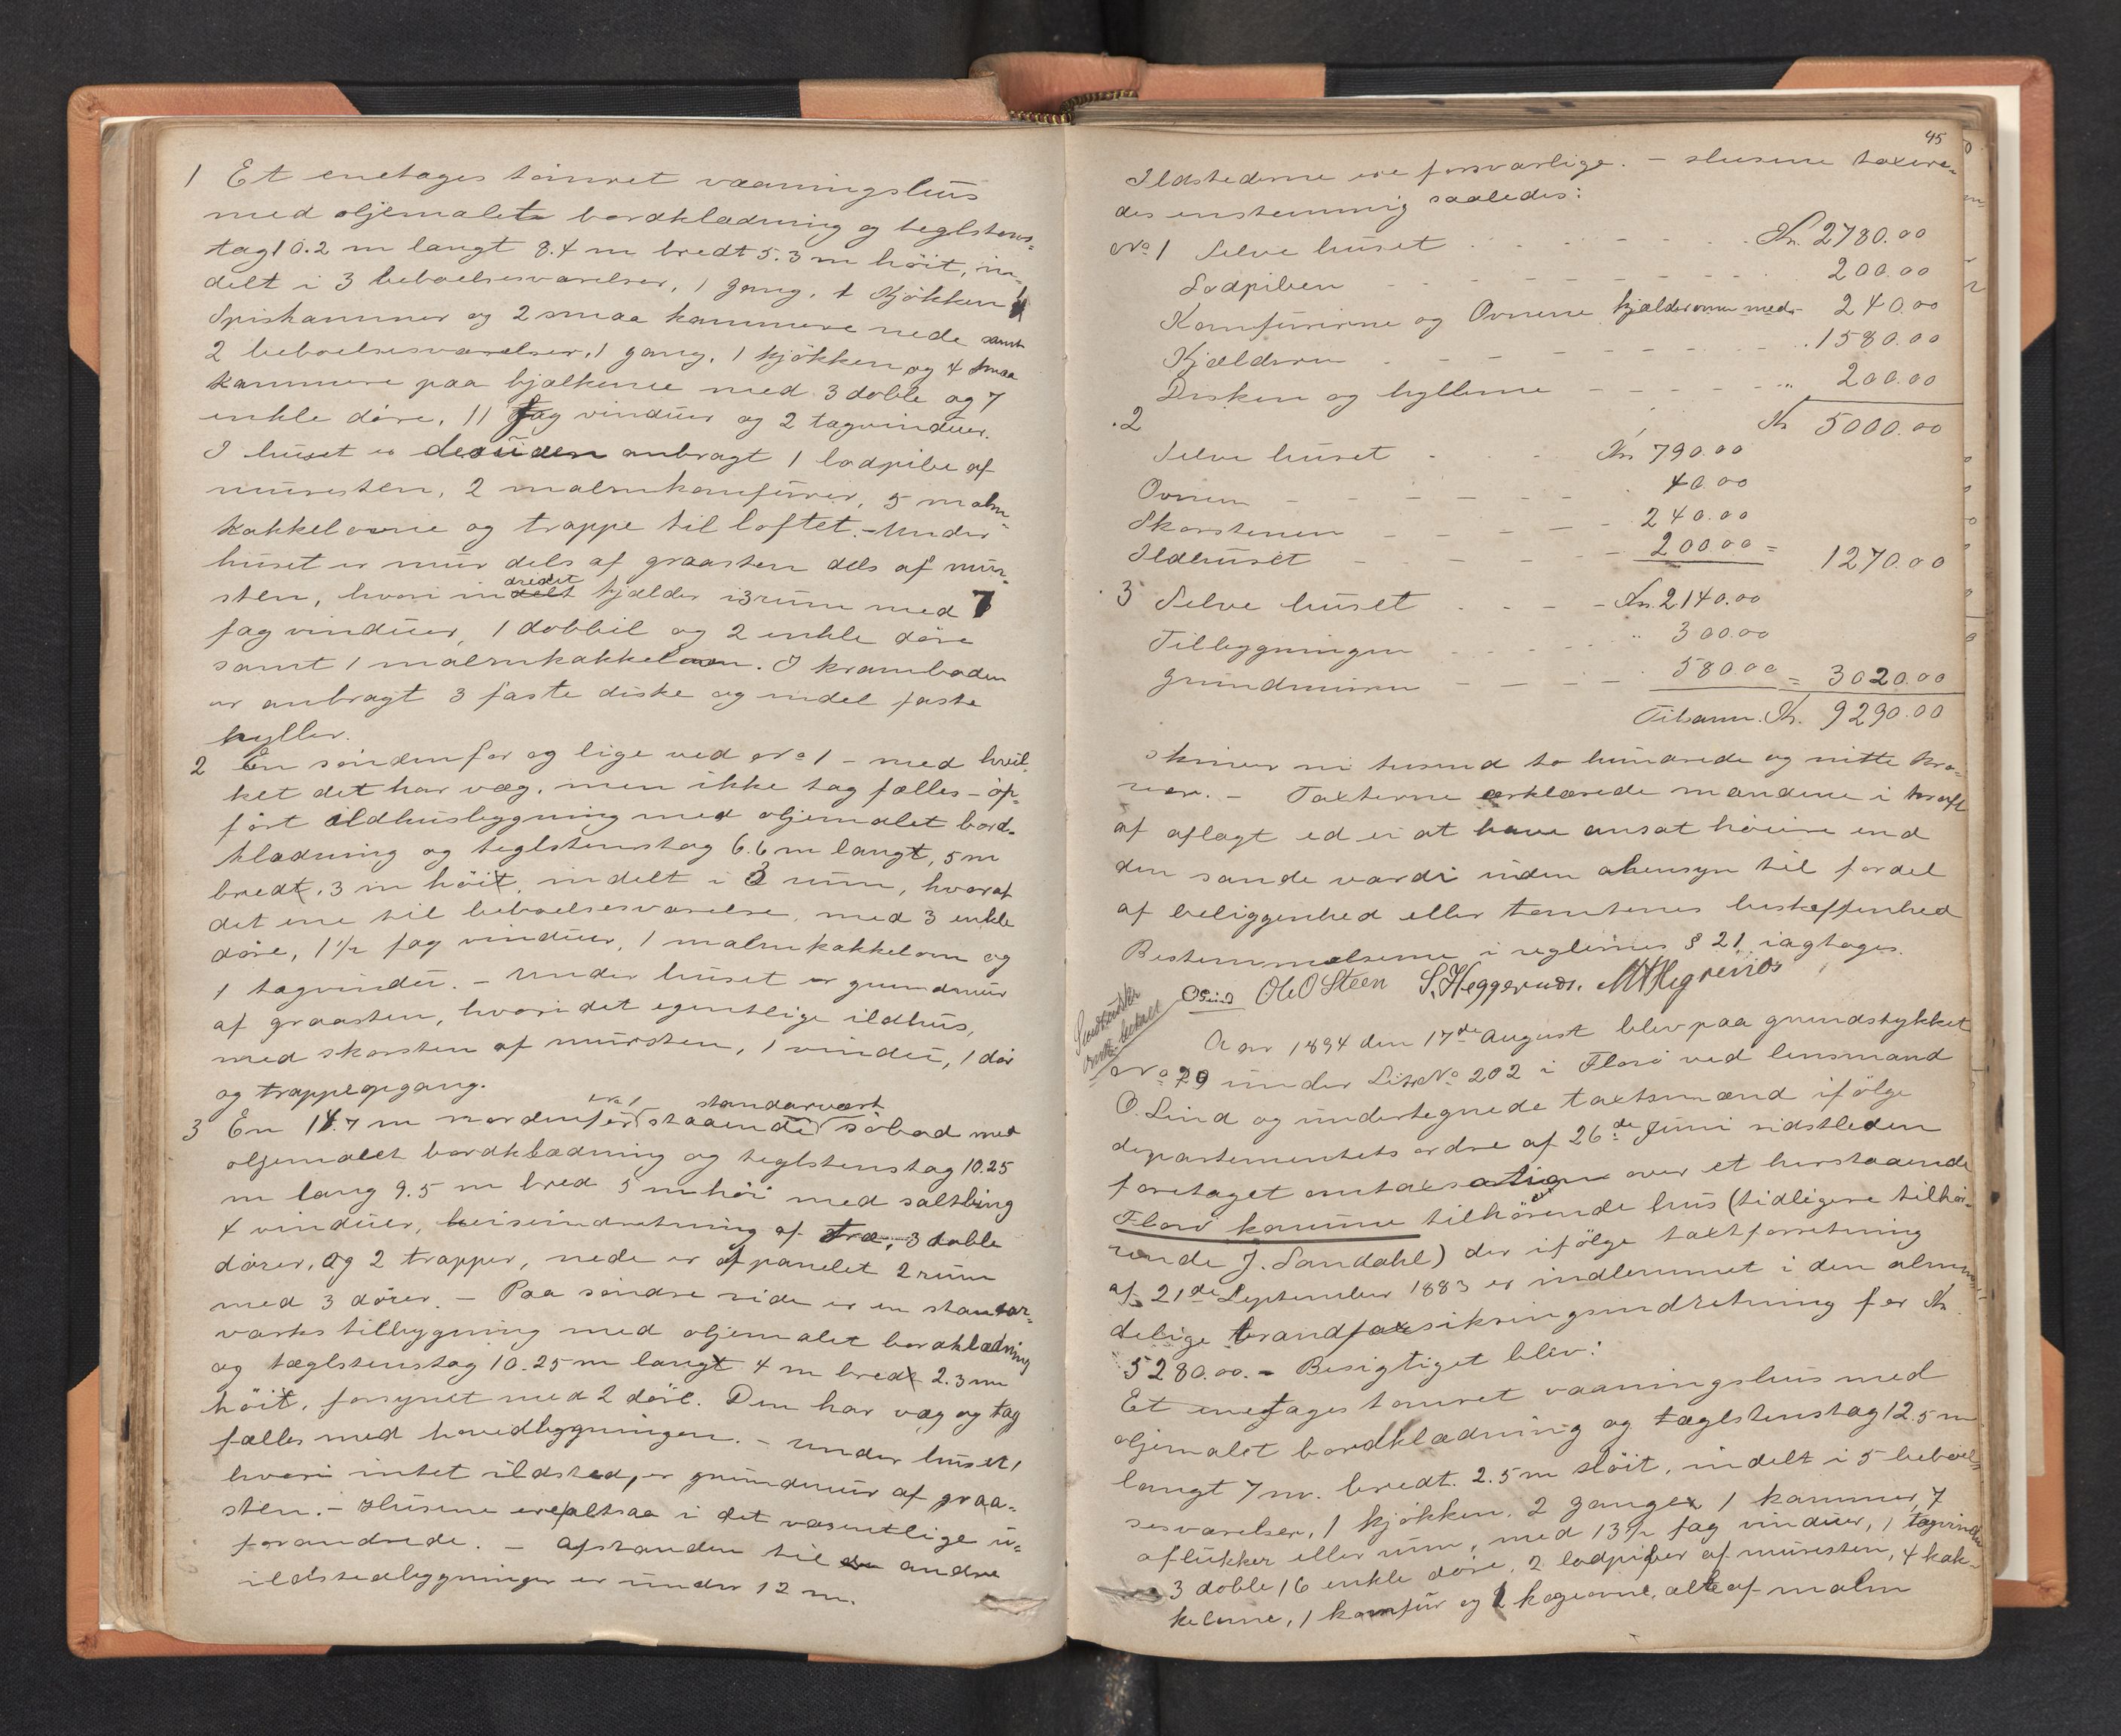 1 Et enetages tømret vaaningshus
med oljemalet bordklædning og teglstens-
tag 10.2 m langt 8.4 m bredt 5.3 m høit, in-
delt i 3 beboelsesværelser, 1 gang, 1 Kjøkken
Spiskammer og 2 smaa kammere nede samt
2 beboelsesværelser, 1 gang, 1 kjøkken og 4 smaa
kammere paa bjelkene med 3 doble og 7
enkle døre, 11 fag vinduer og 2 tagvinduer.
I huset er desuden anbragt 1 lodpibe af
mursten, 2 malmkomfurer, 5 malm-
kakkelovne og trappe til loftet. - Under
huset er mur dels af graasten dels af mur-
sten, hvori indredet kjælder i 3 rum med 7
fag vinduer, 1 dobbel og 2 enkle døre
samt 1 malmkakkelovn. I kramboden
er anbragt 3 faste diske og endel faste
hyller.
2 En søndenfor og lige ved No 1 - med hvil-
ket det har væg, men ikke tag fælles - op-
ført ildhusbygning med oljemalet bord-
klædning og teglstenstag 6.6 m langt, 5 m
bredt, 3 m høit, indelt i 2 rum, hvoraf
det ene til beboelsesværelse, med 3 enkle
døre, 1 1/2 fag vinduer, 1 malmkakkelovn og
1 tagvindu. - Under huset er grundmur
af graasten, hvori det egentlige ildhus,
med skorsten af mursten, 1 vindu, 1 dør
og trappeopgang.
No 1 standarvært
3 En 14.7 m nordenfor staaende søbod med
oljemalet bordklædning og teglstenstag 10.25
m lang 9.5 m bred 5 m høi med saltbing
4 vinduer, heiseindretning af træ, 3 doble
dører, og 2 trapper, nede er afpanelet 2 rum
med 3 dører. - Paa søndre side er en standar-
værks tilbygning med oljemalet bordklædning
og tæglstenstag 10.25 m langt 4 m bredt 2.3 m
høit, forsynet med 2 døre. Den har væg og tag
fælles med hovedbygningen. - Under huset,
hvori intet ildsted, er grundmur af graa-
sten. - Husene ere altsaa i det væsentlige u-
forandrede. - Afstanden til andre
ildstedbygninger er under 12 m.
45
Ildstederne ere forsvarlige. - Husene taxere-
des enstemmig saaledes:
No 1 Selve huset Kr. 2780.00
Lodpiben 200.00
Komfurerne og Ovnene kjælderovnen med- 240.00
Kjælderen 1580.00
Disken og hyllerne " 200.00
.2 Kr 5000.00
Selve huset Kr 790.00
Ovnen 40.00
Skorstenen 240.00
Ildhuset 200.00 = 1270.00
.3 Selve huset Kr. 2140.00
Tilbygningen " 300.00
Grundmuren 580.00 = 3020.00
Tilsamm. Kr. 9290.00
skriver ni tusend to hundrede og nitti kro-
ner. - Taxterne erklærede mændene i kraft
af aflagt ed ei at have ansat høiere end
den sande værdi uden ahensyn til fordel
af beliggenhed eller tomtenes beskaffenhed
Bestemmelserne i reglernes § 21 iagtages.
OLind Ole O Steen S. Heggernæs.
Aar 1894 den 17de August blev paa grundstykket
No 29 under Lit No 202 i Florø ved lensmand
O. Lind og undertegnede taxtsmænd ifølge
departementets ordre af 26de Juni sidstleden
foretaget omtaxsation over et herstaaende
Florø komune tilhørende hus (tidligere tilhø-
rende J. Sandahl) der ifølge taxtforretning
af 21de September 1883 er indlemmet i den almin-
delige brandforsikringsindretning for Kr
5280.00. - Besigtiget blev:
Et enetages tømret vaaningshus med
oljemalet bordklædning og tæglstenstag 12.5 m
langt 7 m. bredt. 2.5 m høit, indelt i 5 beboel-
sesværelser, 1 kjøkken, 2 gange 1 kammer, 7
aflukker eller rum, med 13 1/2 fag vinduer, 1 tagvindu
3 doble 16 enkle døre, 2 lodpiber af mursten, 4 kak-
kelovne, 1 komfur og 1 kogeovne, alle af malm